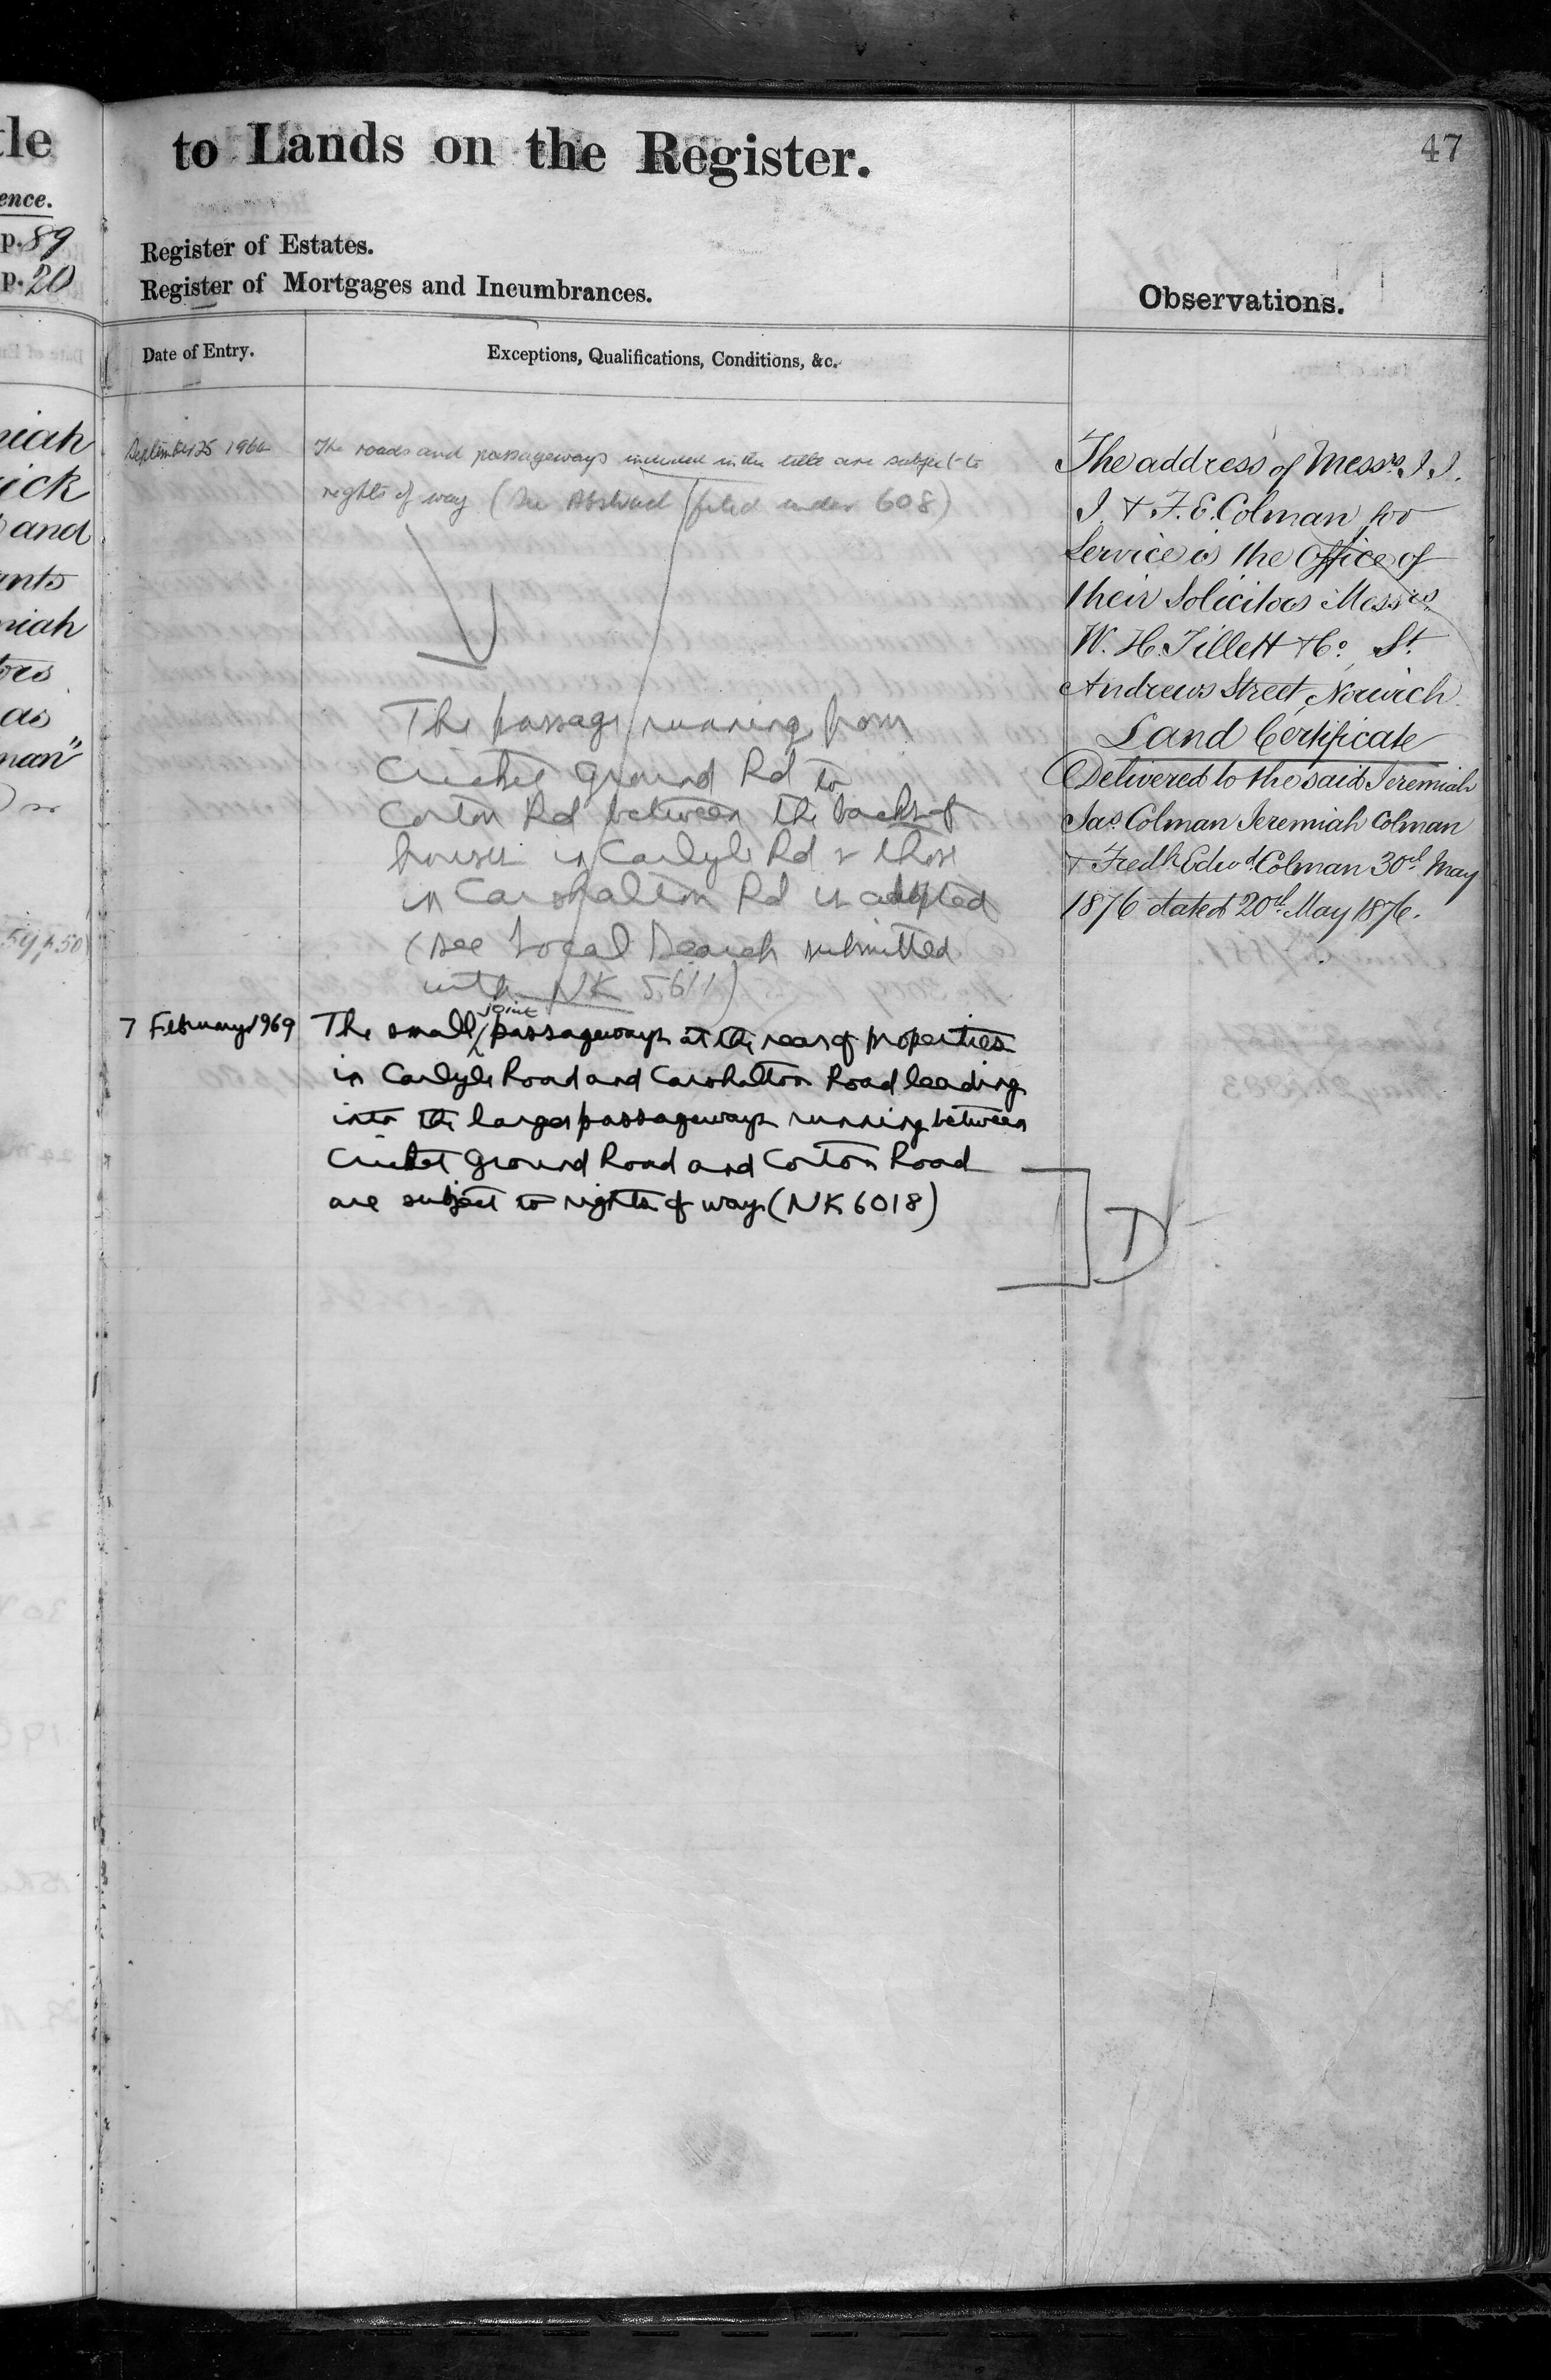 tle
ence.
p. 89
p. 20
niah
ick
and
ants
niah
tors
as
man"
to Lands on the Register.
47
Register of Estates.
Register of Mortgages and Incumbrances.
Observations.
Date of Entry.
Exceptions, Qualifications, Conditions, &c.
September 25
The roads and passageways included in the title are subject to
rights of way (See Abstract filed under 608)
The passage running from
Cricket Ground Rd to
Corton Rd between the backs of
houses in Carlyle Rd & those
in Carshalton Rd is adopted
(see Local Search submitted
with NK 5611)
7 February 1969
The small joint passageways at the rear of properties
in Carlyle Road and Carshalton Road leading
into the larger passageways running between
Cricket Ground Road and Corton Road
are subject to rights of way (NK 6018)
The address of Messrs. J. J.
J. & F. E. Colman for
Service is the Office of
their Solicitors Messrs
W. H. Tillett & Co. St.
Andrews Street, Norwich.
Land Certificate
Delivered to the said Jeremiah
Jas. Colman Jeremiah Colman
& Fredk Edwd Colman 30th May
1876 dated 20th May 1876.
D